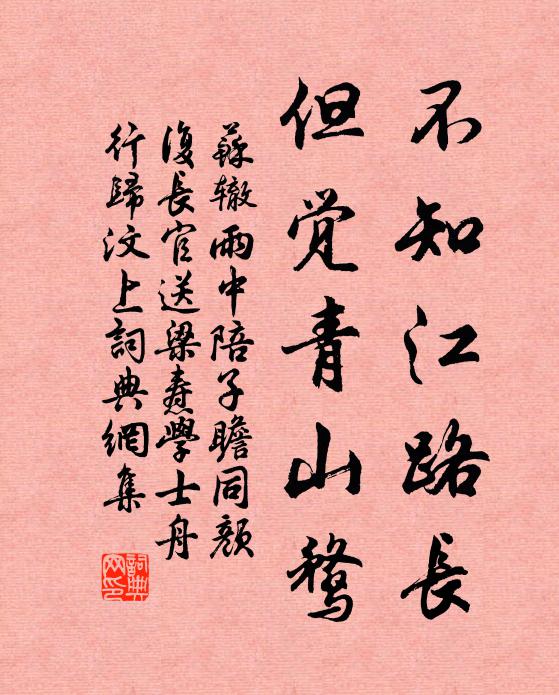 不知江路長
但觉青山鶩
蘇轍雨中陪子瞻同顏
復長官送梁燾學士舟
行歸汶上詞典網集
詞典
网印